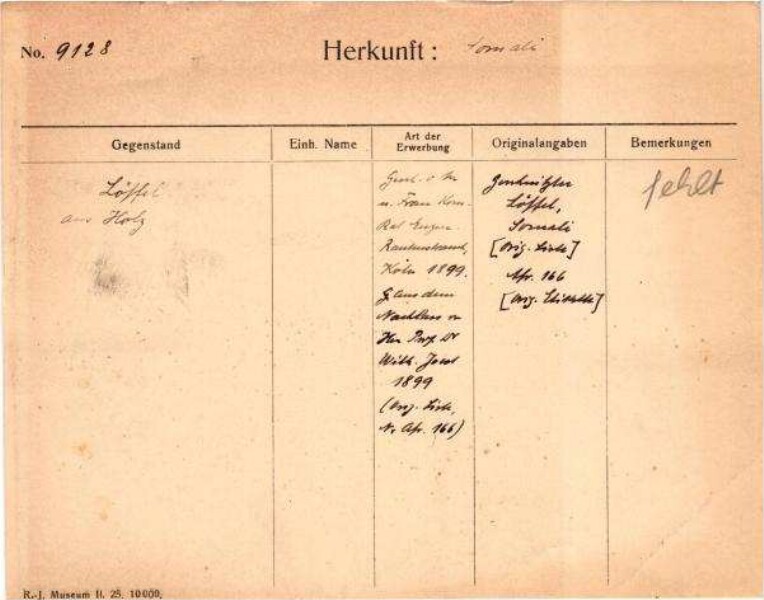 No. 9128
Herkunft: Somali
Gegenstand
Einh. Name
Art der
Erwerbung
Originalangaben
Bemerkungen
Löffel
aus Holz
Gesch. v. Hr
u. Frau Kom.
Rat Eugen
Rautenstrauch,
Köln 1899.
G. aus dem
Nachlass v.
Her Prof. Dr
Wilh. Joest
1899
(Orig. Liste,
Nr Afr. 166)
Geschnitzter
Löffel,
Somali
[Orig. Liste]
Afr. 166
[Orig. Etikette]
fehlt
R.-J. Museum II. 25. 10000.